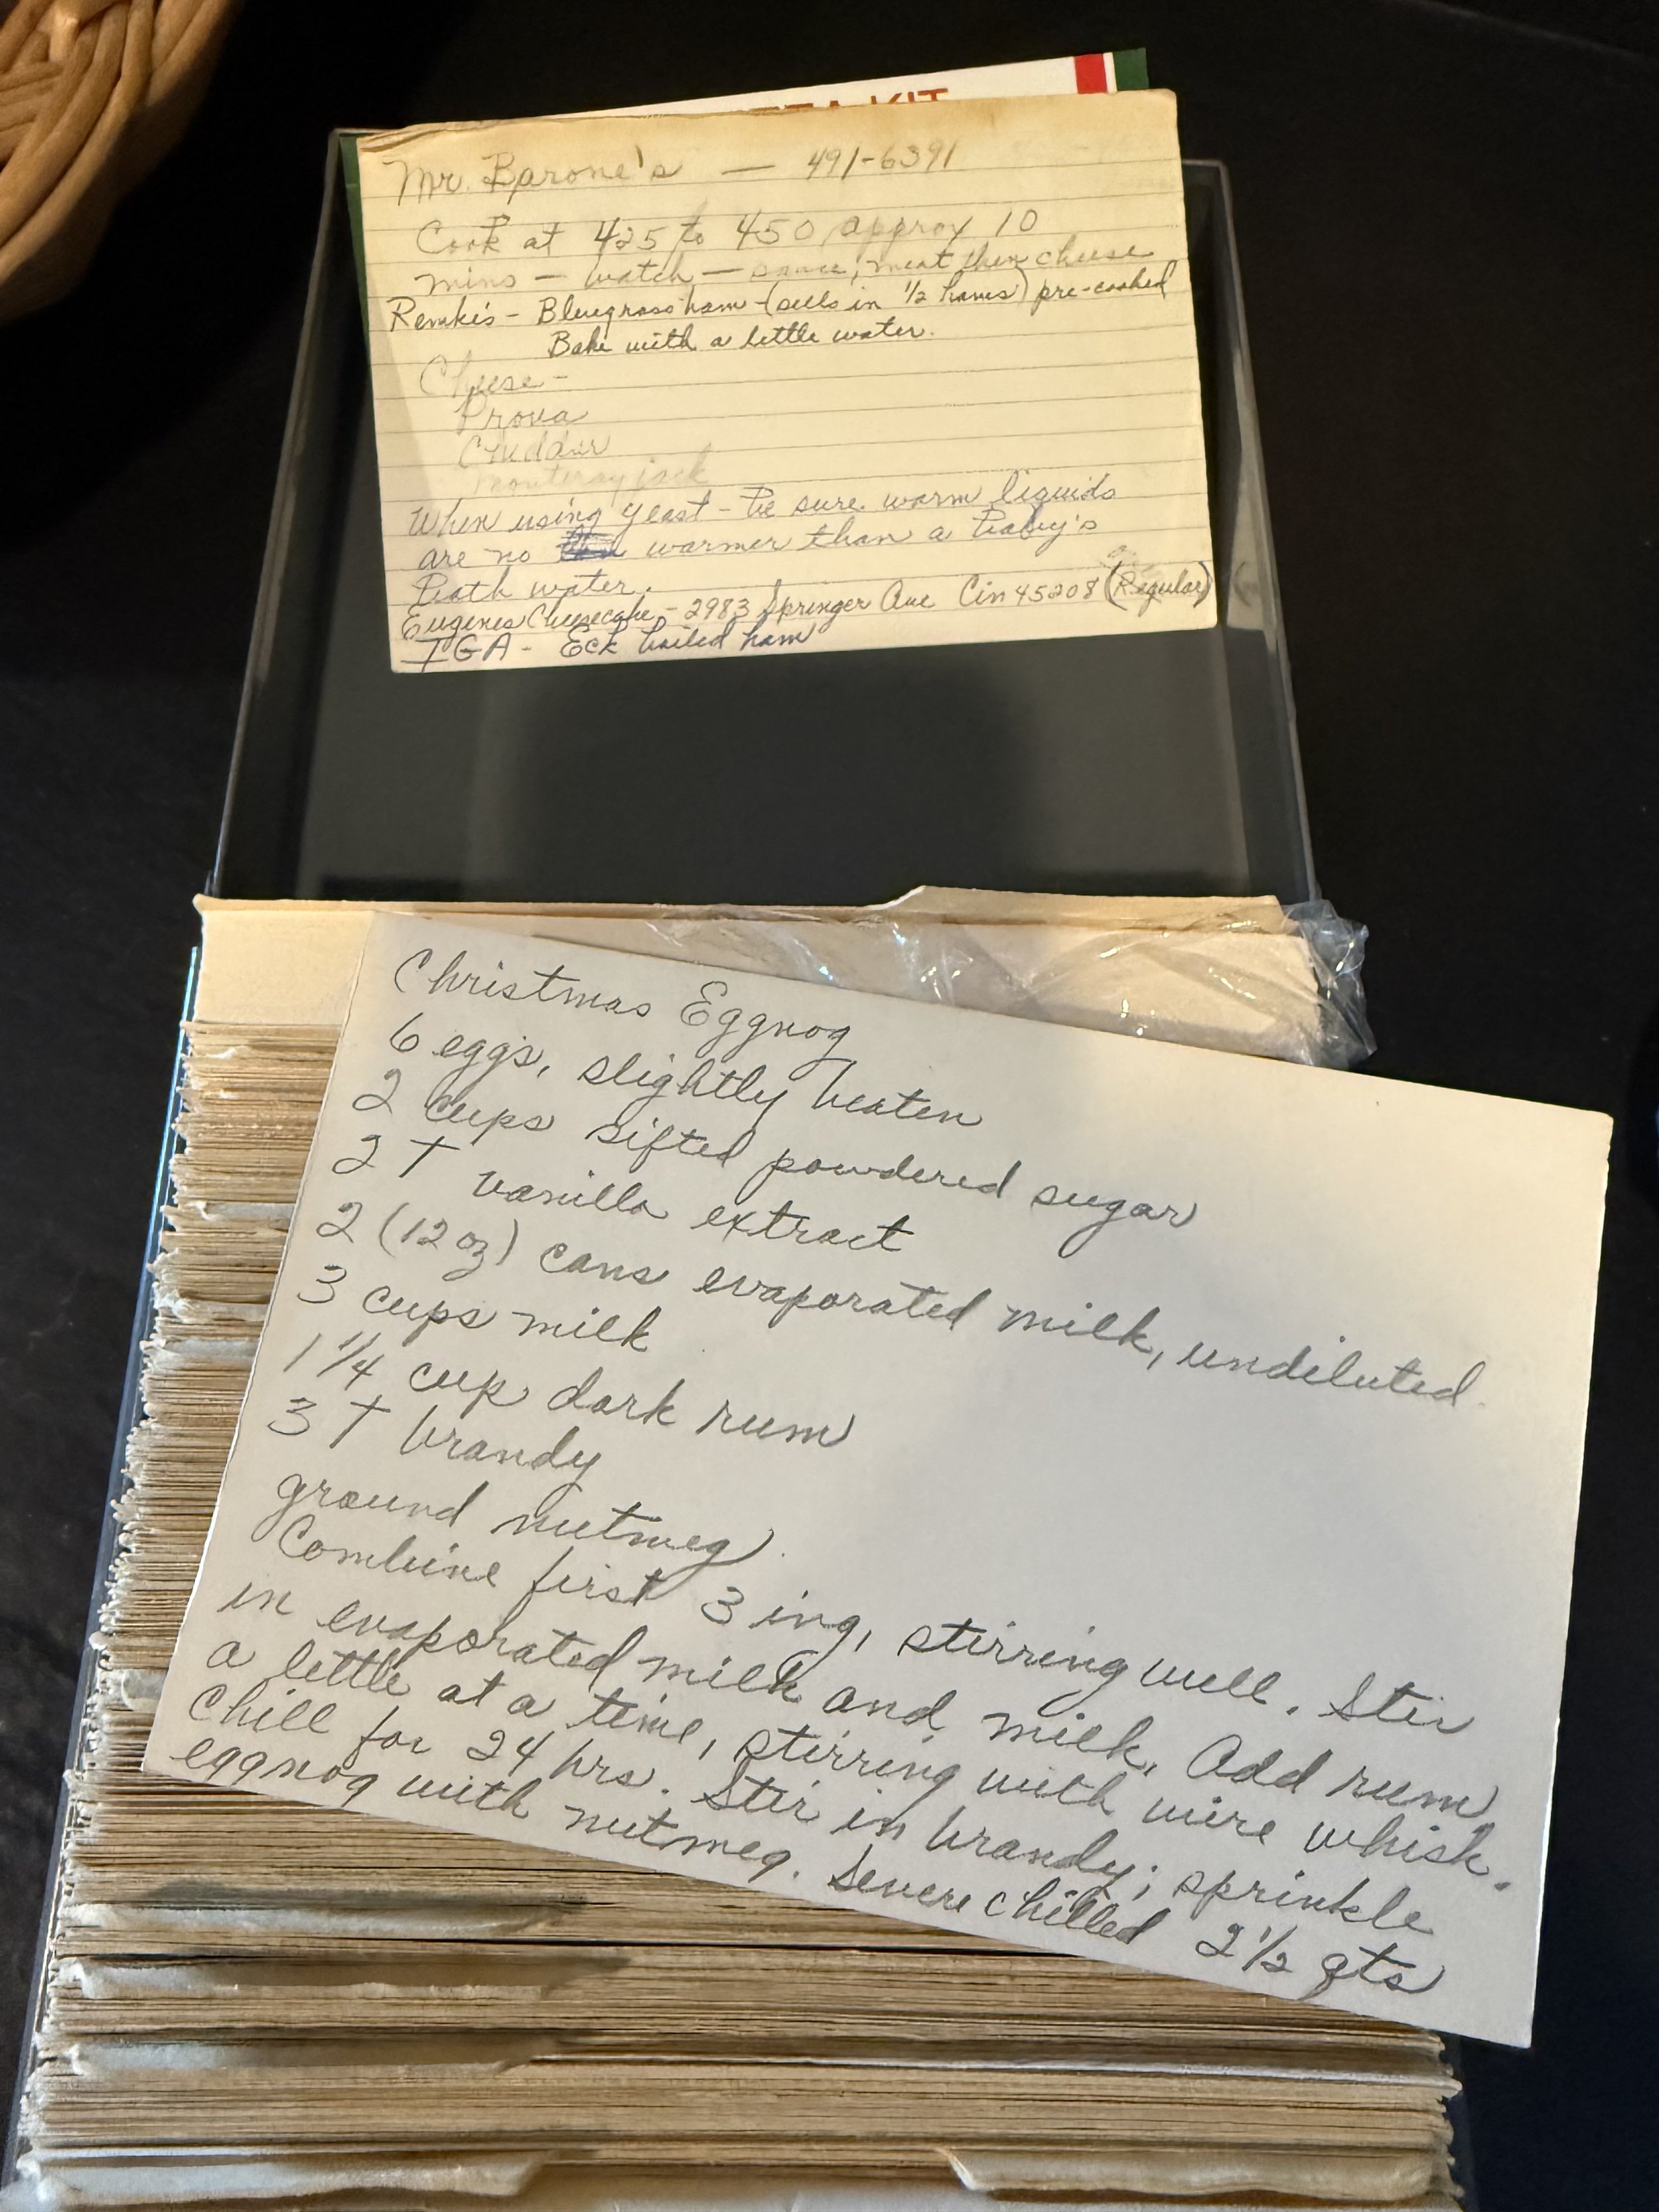 KIT
Mr. Barone's — 491-6391
Cook at 425 to 450 approx 10
mins — watch — sauce, meat then cheese
Remke's - Bluegrass ham - (sells in 1/2 hams) pre-cooked
Bake with a little water.
Cheese -
Prova
Cheddar
monteray jack
When using yeast - be sure warm liquids
are no warmer than a baby's
bath water.
Eugenes Cheesecake - 2983 Springer Ave Cin 45208 (Regular)
IGA - Eck boiled ham
Christmas Eggnog
6 eggs, slightly beaten
2 cups sifted powdered sugar
2 T vanilla extract
2 (12 oz) cans evaporated milk, undiluted.
3 cups milk
1 1/4 cup dark rum
3 T brandy
ground nutmeg
Combine first 3 ing, stirring well. Stir
in evaporated milk and milk. Add rum,
a little at a time, stirring with wire whisk.
Chill for 24 hrs. Stir in brandy; sprinkle
eggnog with nutmeg. Severe chilled 2 1/2 qts